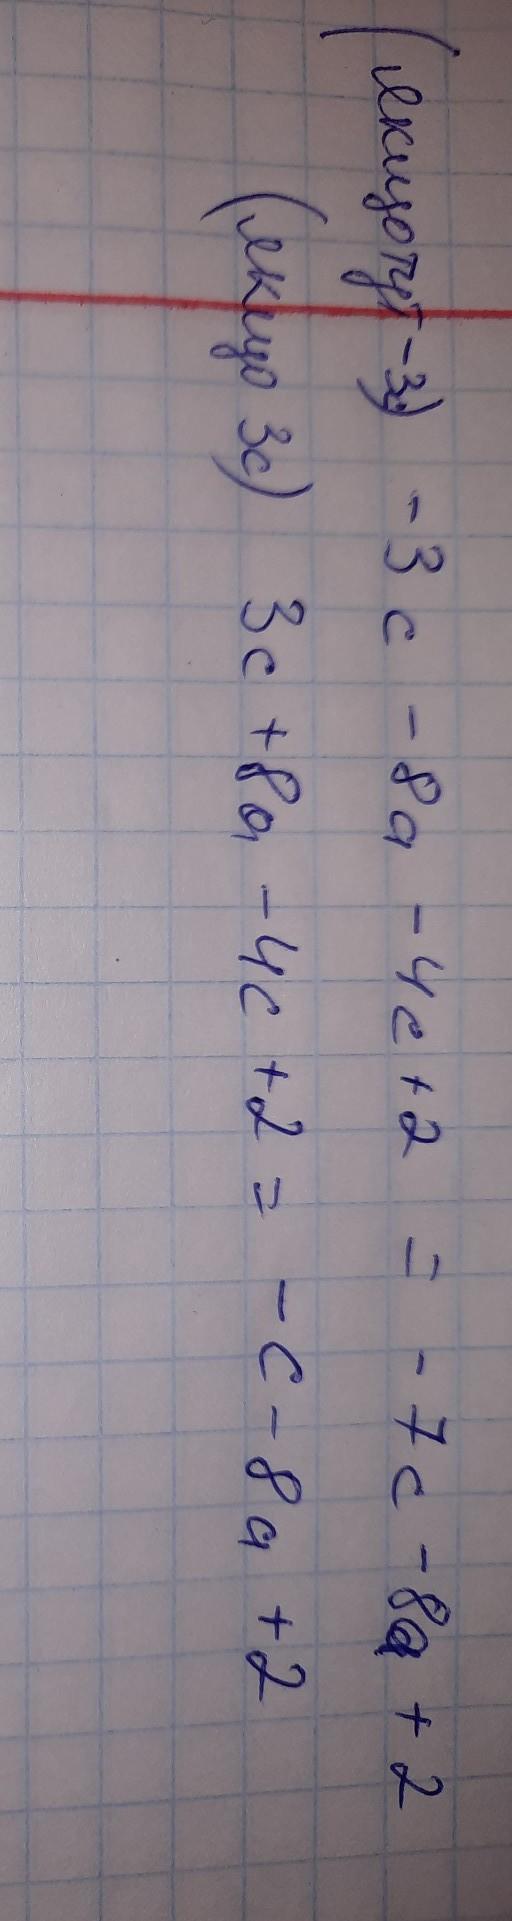 (якщо тут -3) -3c - 8a - 4c + 2 = - 7c - 8a + 2
(якщо 3c) 3c + 8a - 4c + 2 = - c - 8a + 2